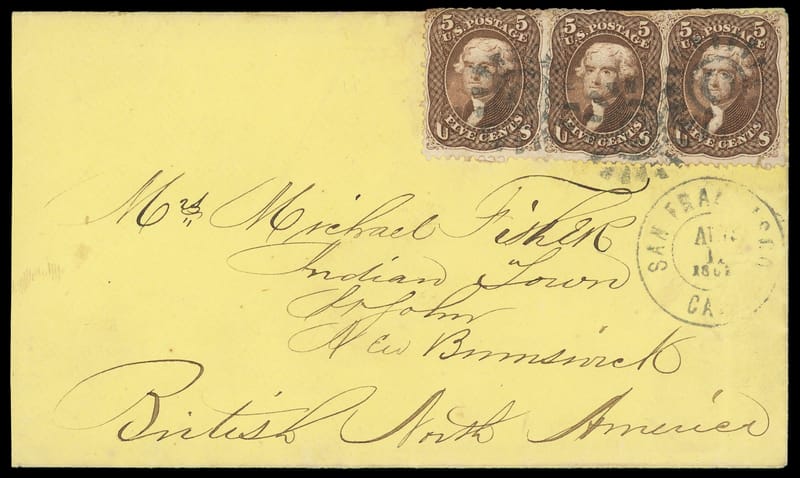 5 U.S. POSTAGE 5
U FIVE CENTS S
5 U.S. POSTAGE 5
U FIVE CENTS S
5 U.S. POSTAGE 5
U FIVE CENTS S
Mrs Michael Fisher
Indian Town
St John
New Brunswick
British North America
SAN FRANCISCO
CAL